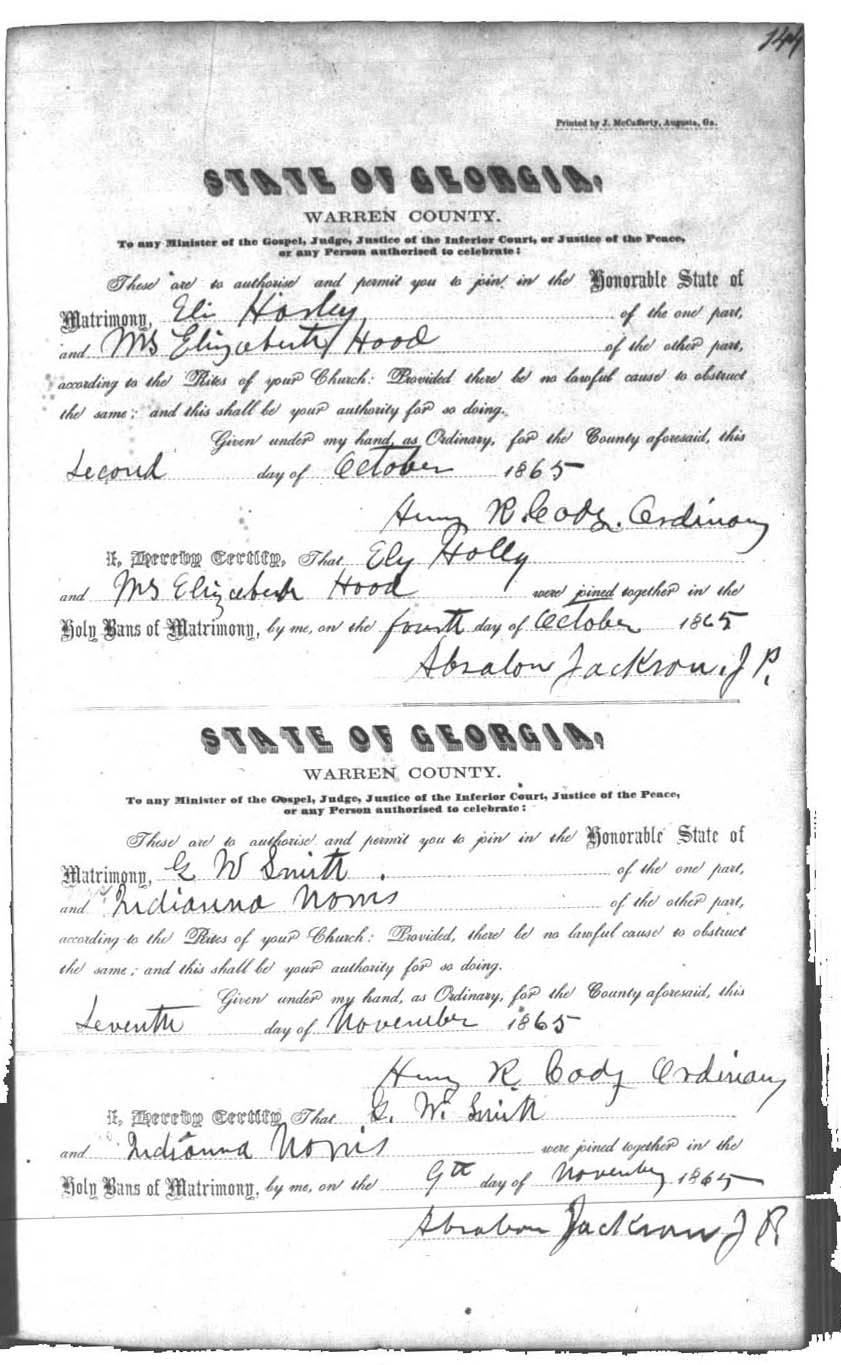 144
Printed by J. McCafferty, Augusta, Ga.
STATE OF GEORGIA,
WARREN COUNTY.
To any Minister of the Gospel, Judge, Justice of the Inferior Court, or Justice of the Peace,
or any Person authorised to celebrate:
These are to authorise and permit you to join in the Honorable State of
Matrimony, Eli Hosley of the one part,
and Ms Elizabeth Hood of the other part,
according to the Rites of your Church: Provided there be no lawful cause to obstruct
the same; and this shall be your authority for so doing.
Given under my hand, as Ordinary, for the County aforesaid, this
Second day of October 1865
Henry R. Cody. Ordinary
I, Hereby Certify, That Ely Holly
and Ms Elizabeth Hood were joined together in the
Holy Bans of Matrimony, by me, on the fourth day of October 1865
Absalom Jackson. J P.
STATE OF GEORGIA,
WARREN COUNTY.
To any Minister of the Gospel, Judge, Justice of the Inferior Court, Justice of the Peace,
or any Person authorised to celebrate:
These are to authorise and permit you to join in the Honorable State of
Matrimony, G W Smith . of the one part,
and Indianna Norris of the other part,
according to the Rites of your Church: Provided, there be no lawful cause to obstruct
the same; and this shall be your authority for so doing.
Given under my hand, as Ordinary, for the County aforesaid, this
Seventh day of November 1865
Henry R Cody Ordinary
I, Hereby Certify That G. W. Smith
and Indianna Norris were joined together in the
Holy Bans of Matrimony, by me, on the 9th day of November 1865
Absalom Jackson J P.